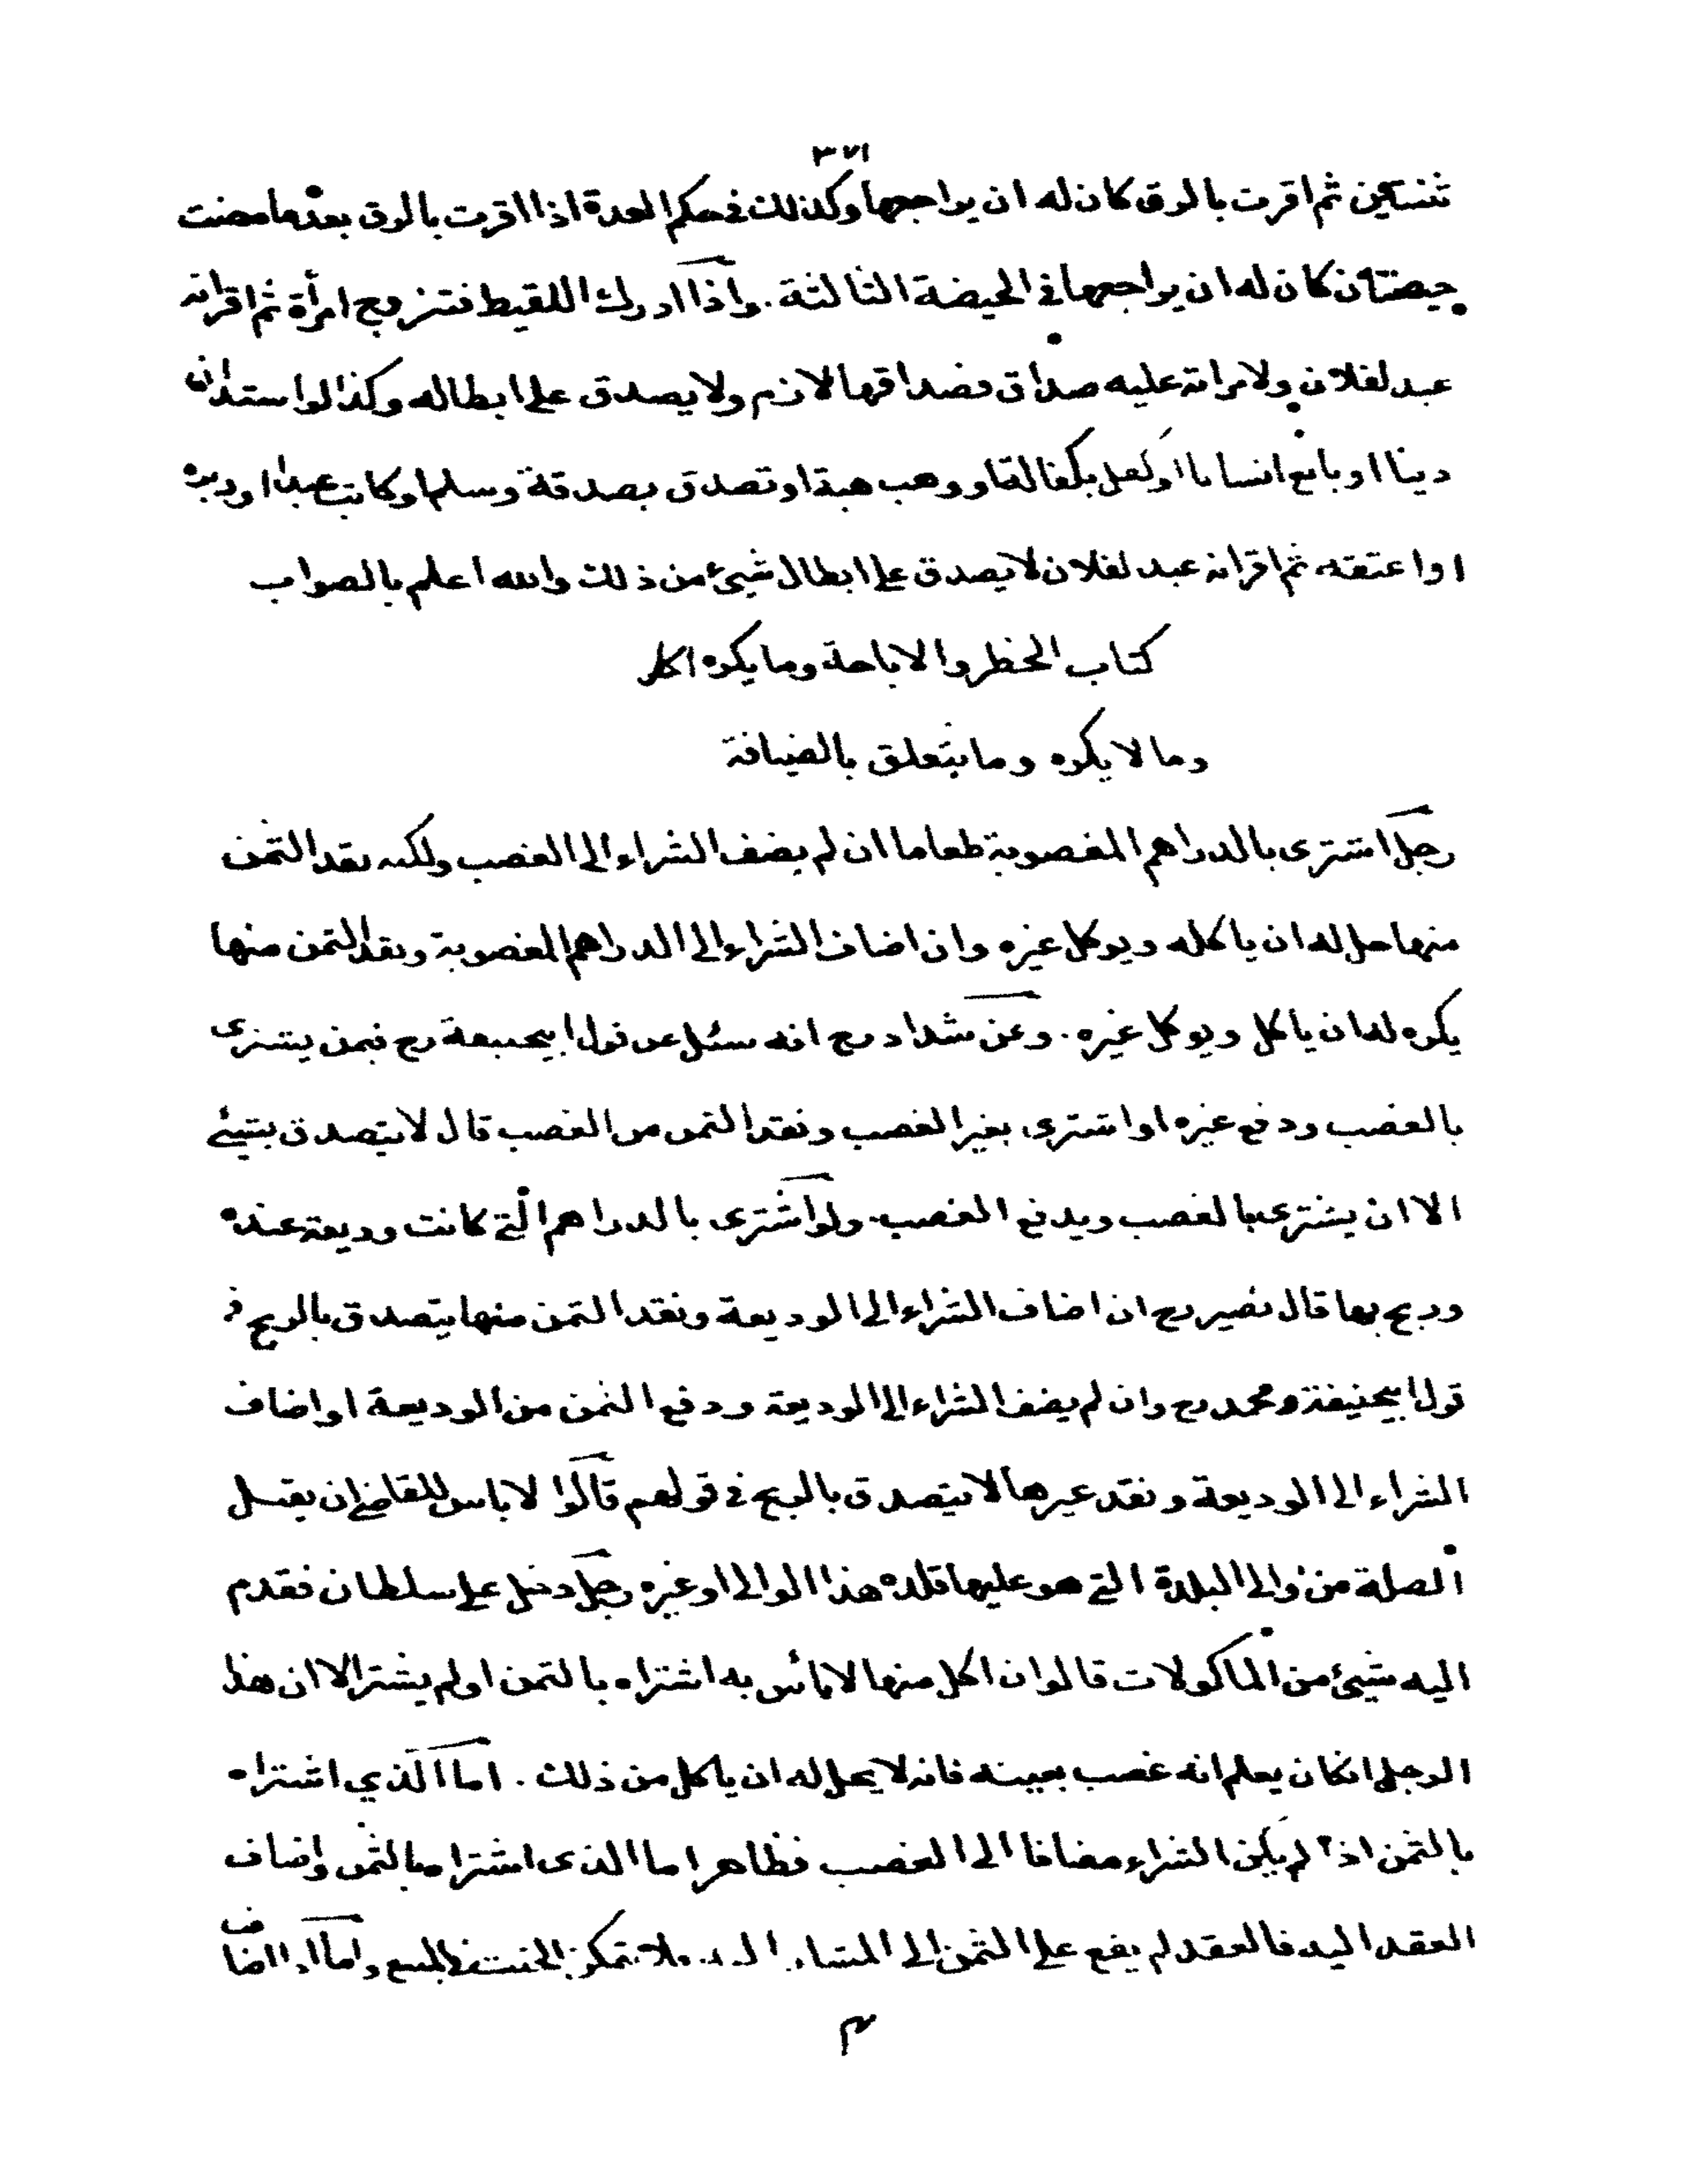 ٣٧١
ثنتين ثم اقرت بالرق كان له ان يراجعها وكذلك في حكم العدة اذا اقرت بالرق بعد ما مضت
حيضتان كان له ان يراجعها في الحيضة الثالثة. واذا ادرك اللقيط فتزوج امرأة ثم اقر انه
عبد لفلان ولامراته عليه صداق فصداقها لازم ولا يصدق على ابطاله وكذا لو استدان
دينا او بايع انسانا او كفل بكفالة او وهب هبة او تصدق بصدقة وسلم او كاتب عبدا او دبره
او اعتقه ثم اقر انه عبد لفلان لا يصدق على ابطال شيئ من ذلك والله اعلم بالصواب
كتاب الحظر والاباحة وما يكره اكله
وما لا يكره وما يتعلق بالضيافة
رجل اشترى بالدراهم المغصوبة طعاما ان لم يضف الشراء الى الغصب ولكنه نقد الثمن
منها حل له ان ياكله ويوكل غيره وان اضاف الشراء الى الدراهم المغصوبة ونقد الثمن منها
يكره له ان ياكل ويوكل غيره. وعن شداد رح انه سئل عن قول ابيحنيفة رح فيمن يشترى
بالغصب ودفع غيره او اشترى بغير الغصب ونقد الثمن من الغصب قال لا يتصدق بشيئ
الا ان يشترى بالغصب ويدفع الغصب. ولو اشترى بالدراهم التي كانت وديعة عنده
وربح بها قال نصير رح ان اضاف الشراء الى الوديعة ونقد الثمن منها يتصدق بالربح في
قول ابيحنيفة ومحمد رح وان لم يضف الشراء الى الوديعة ودفع الثمن من الوديعة او اضاف
الشراء الى الوديعة ونقد غيرها لا يتصدق بالربح في قولهم قالوا لا باس للقاضي ان يقبل
الصلة من والى البلدة التي هو عليها قلده هذا الوالى او غيره رجل دخل على سلطان فقدم
اليه شيئ من الماكولات قالوا ان اكل منها لا بائس به اشتراه بالثمن او لم يشتر الا ان هذا
الرجل انكان يعلم انه غصب بعينه فانه لا يحل له ان ياكل من ذلك. اما الذي اشتراه
بالثمن اذا لم يكن الشراء مضافا الى الغصب فظاهر اما الذى اشتراه بالثمن واضاف
العقد اليه فالعقد لم يقع على الثمن الى المشار اليه فلا يتمكن الخبث في المبيع واما اذا اضاف
م